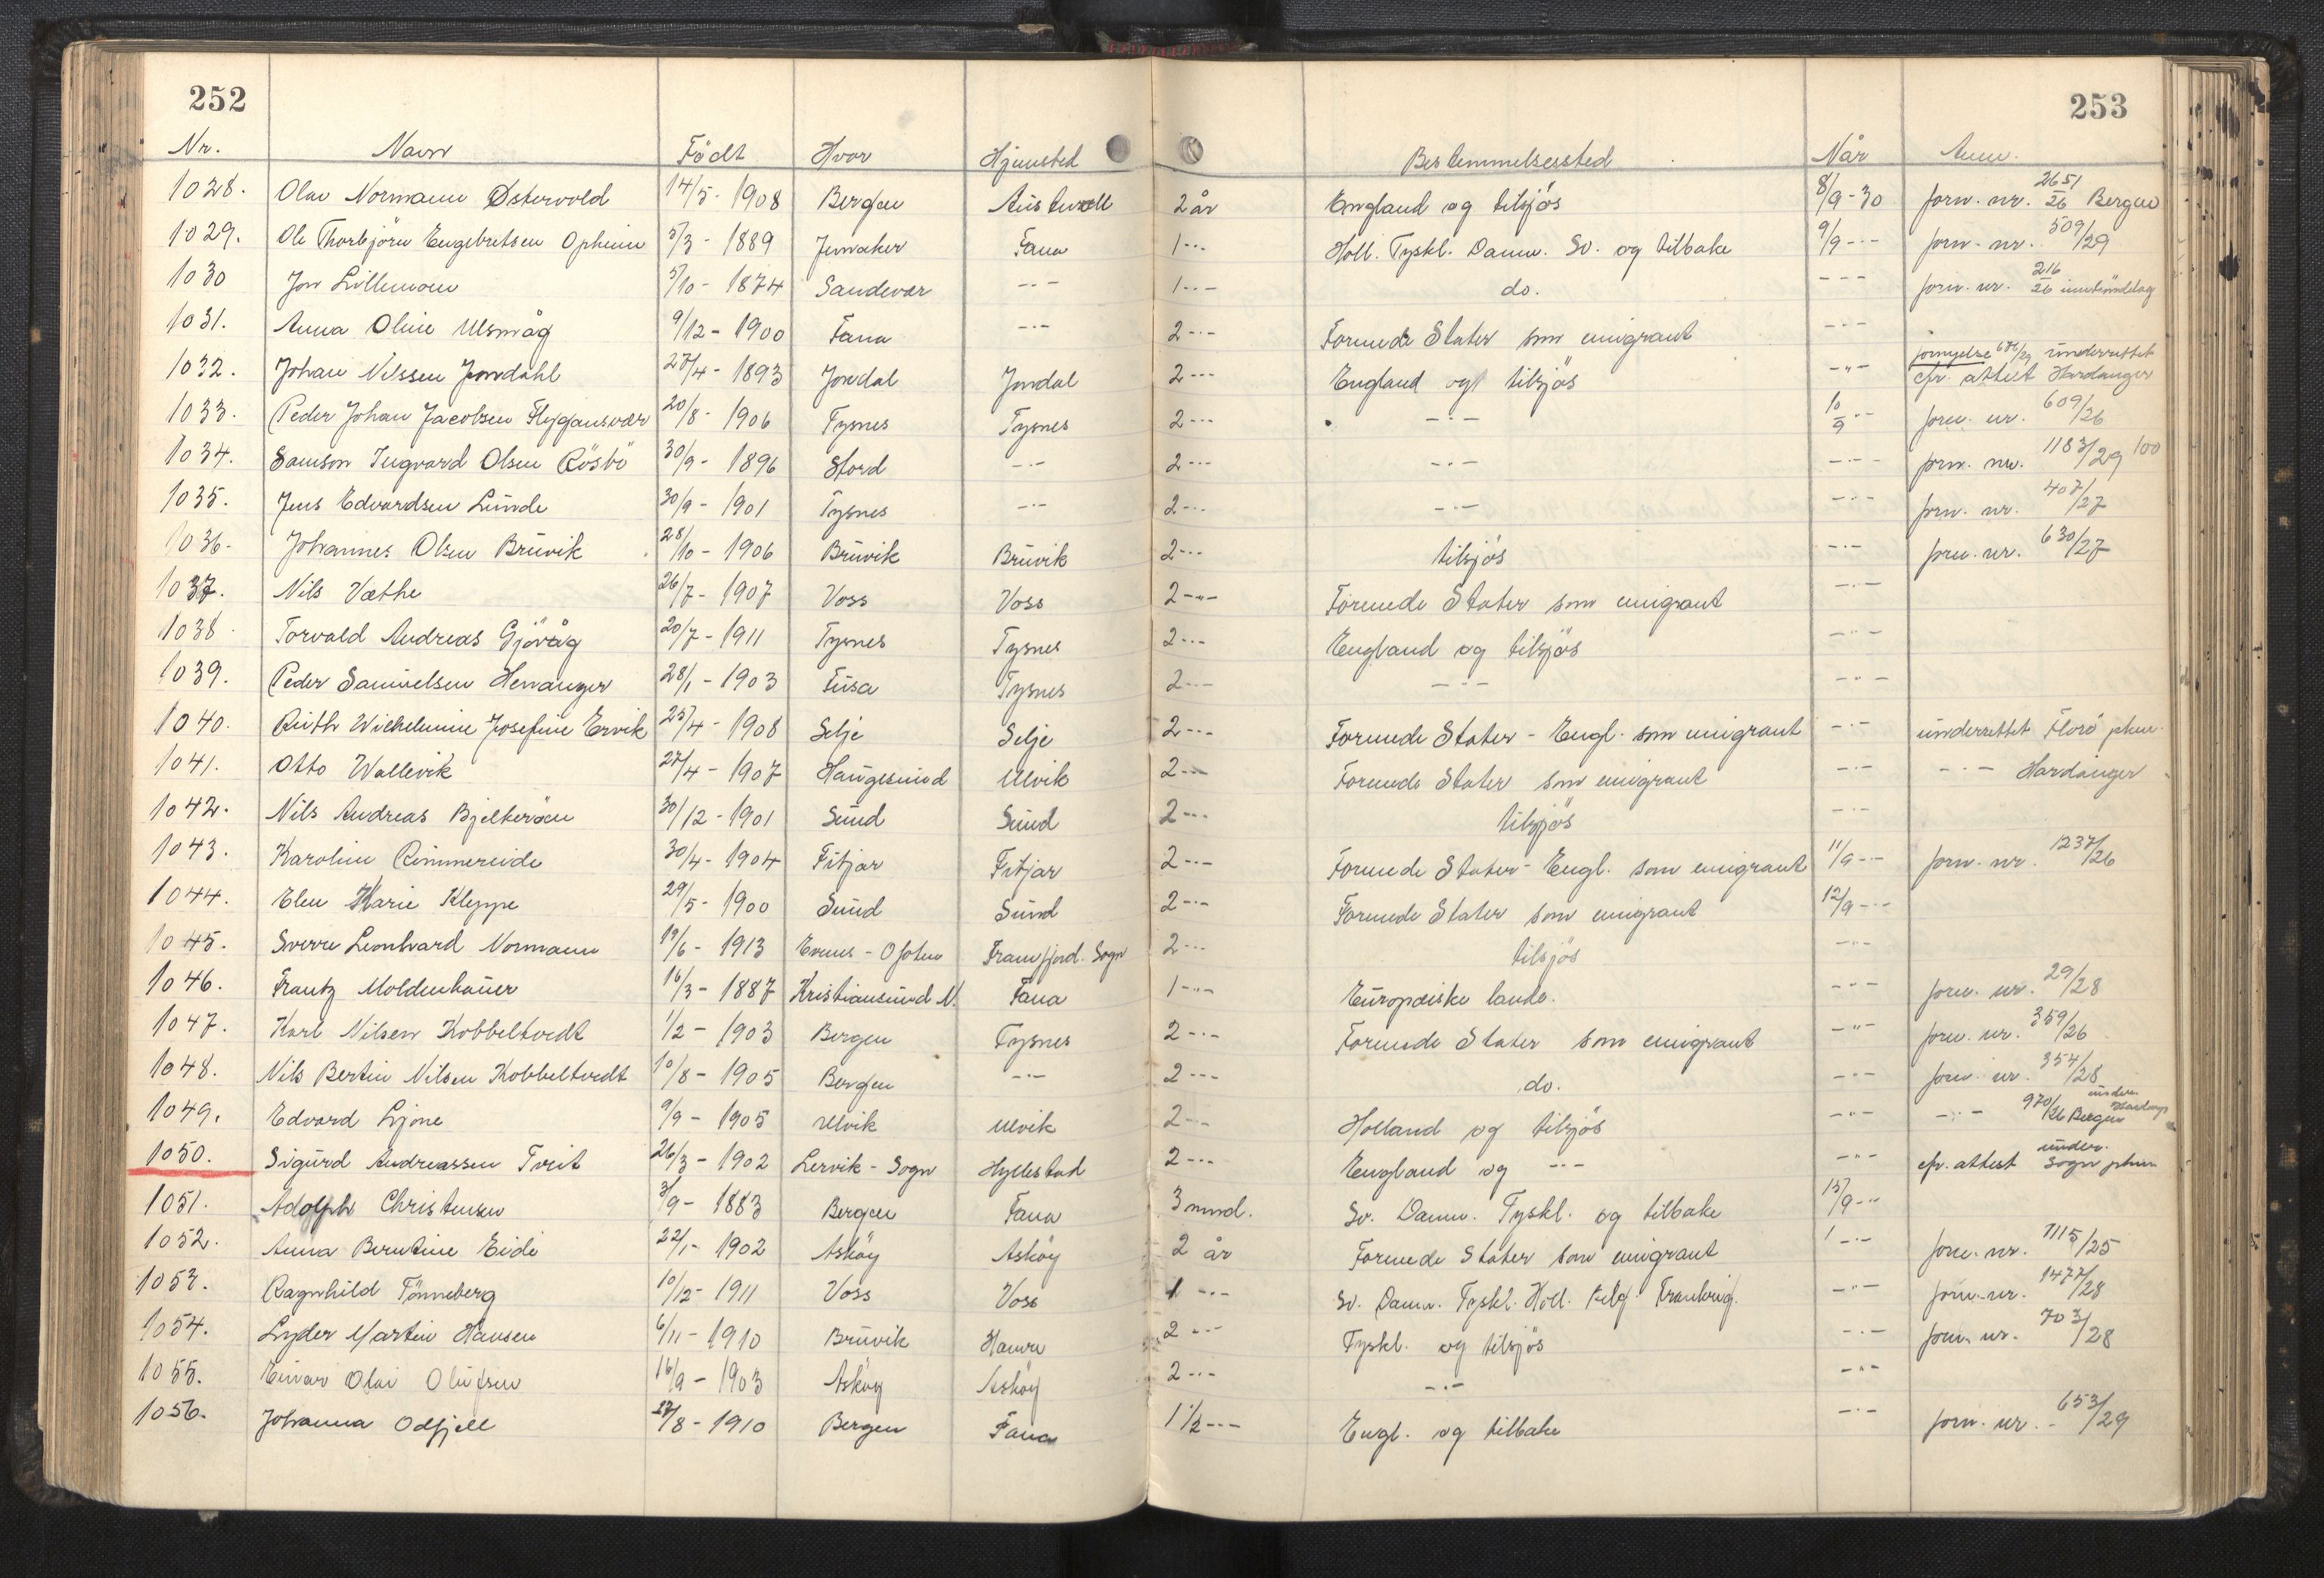 252
253
Nr. Navn Født Hvor Hjemsted Bestemmelsessted Når Anm.
1028. Olav Normann Østervold 14/5- 1908 Bergen Austevoll 2 år England og tilsjös 8/9-30 forn. nr. 2651/26 Bergen
1029. Ole Thorbjörn Engebretsen Opheim 5/3- 1889 Jevnaker Fana 1 -"- Holl. Tyskl. Danm. Sv. og tilbake 9/9 -"- forn. nr. 509/29
1030 Jon Lillemoen 5/10- 1874 Sandsvær -"- 1 -"- do. -"- forn. nr. 216/26
1031. Anna Oline Ulsmåg 9/12- 1900 Fana -"- 2 -"- Forenede Stater som emigrant -"-
1032. Johan Nilssen Jondahl 27/4- 1893 Jondal Jondal 2 -"- England og tilsjös -"- fornyelse 676/29 underrettet
cfr. attest Hardanger
1033. Peder Johan Jacobsen Flygansvær 20/8- 1906 Tysnes Tysnes 2 -"- -"- 10/9 -"- forn. nr. 609/26
1034. Samson Ingvard Olsen Rösbö 30/9- 1896 Stord -"- 2 -"- -"- -"- forn. nr. 1183/29 100
1035. Jens Edvardsen Lunde 30/9- 1901 Tysnes -"- 2 -"- -"- -"- forn. nr. 407/27
1036. Johannes Olsen Bruvik 28/10- 1906 Bruvik Bruvik 2 -"- tilsjös -"- forn. nr. 630/27
1037. Nils Væthe 26/7- 1907 Voss Voss 2 -"- Forenede Stater som emigrant -"-
1038. Torvald Andreas Gjövåg 20/7- 1911 Tysnes Tysnes 2 -"- England og tilsjös -"-
1039. Peder Samuelsen Henanger 28/1- 1903 Fusa Tysnes 2 -"- -"- -"-
1040. Ruth Wilhelmine Josefine Ervik 25/4- 1908 Selje Selje 2 -"- Forenede Stater - Engl. som emigrant -"- underrettet Florö pkm.
1041. Otto Wallevik 27/4- 1907 Haugesund Ulvik 2 -"- Forenede Stater som emigrant -"- -"- Hardanger
1042. Nils Andreas Bjelkeröen 30/12- 1901 Sund Sund 2 -"- tilsjös -"-
1043. Karoline Rimmereide 30/4- 1904 Fitjar Fitjar 2 -"- Forenede Stater - Engl. som emigrant 11/9 -"- forn. nr. 1237/26
1044. Elen Marie Kleppe 29/5- 1900 Sund Sund 2 -"- Forenede Stater som emigrant 12/9 -"-
1045. Sverre Leonhard Normann 19/6- 1913 Evenes - Ofoten Framfjord. Sogn 2 -"- tilsjös -"-
1046. Frantz Moldenhauer 16/3- 1887 Kristiansund N. Fana 1 -"- Europæiske lande. -"- forn. nr. 29/28
1047. Karl Nilsen Kobbeltvedt 1/2- 1903 Bergen Tysnes 2 -"- Forenede Stater som emigrant -"- forn. nr. 359/26
1048. Nils Bertin Nilsen Kobbeltvedt 10/8- 1905 Bergen -"- 2 -"- do. -"- forn. nr. 354/28
1049. Edvard Ljone 9/9- 1905 Ulvik Ulvik 2 -"- Holland og tilsjös -"- -"- 970/26 Bergen under. Hardang.
1050. Sigurd Andreassen Tveit 26/3- 1902 Lervik - Sogn Hyllestad 2 -"- England og -"- -"- cfr. attest under. Sogn pkm
1051. Adolph Christensen 3/9- 1883 Bergen Fana 3 mnd. Sv. Danm. Tyskl. og tilbake 15/9 -"-
1052. Anna Berntine Eide 22/1- 1902 Asköy Asköy 2 år Forenede Stater som emigrant -"- forn. nr. 1115/25
1053. Ragnhild Tönneberg 10/12- 1911 Voss Voss 1 -"- Sv. Danm. Tyskl. Holl. Belg. Frankrig. -"- forn. nr. 1477/28
1054. Lyder Martin Hansen 6/11- 1910 Bruvik Hamre 2 -"- Tyskl. og tilsjös -"- forn. nr. 703/28
1055. Einar Olai Olufsen 16/9- 1903 Asköy Asköy 2 -"- -"- -"-
1056. Johanna Odfjell 27/8- 1910 Bergen Fana 1 1/2 -"- Engl. og tilbake -"- forn. nr. - 653/29